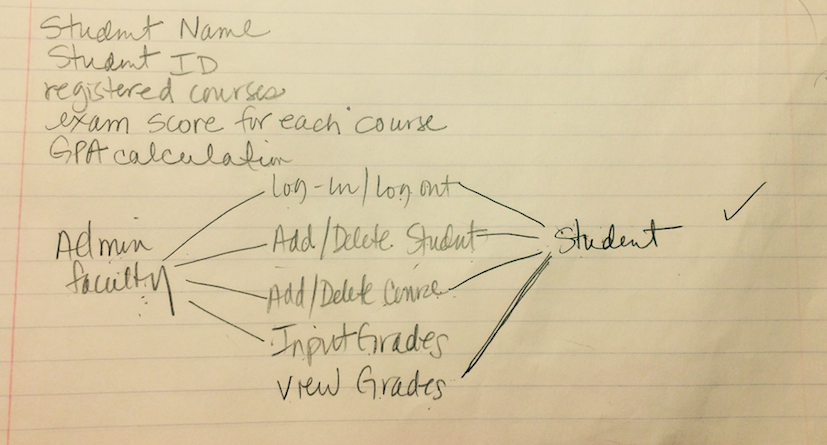 Student Name
Student ID
registered courses
exam score for each course
GPA calculation
Log-in/Log out
Admin
faculty
Add/Delete Student
Student
Add/Delete Course
Input Grades
View Grades